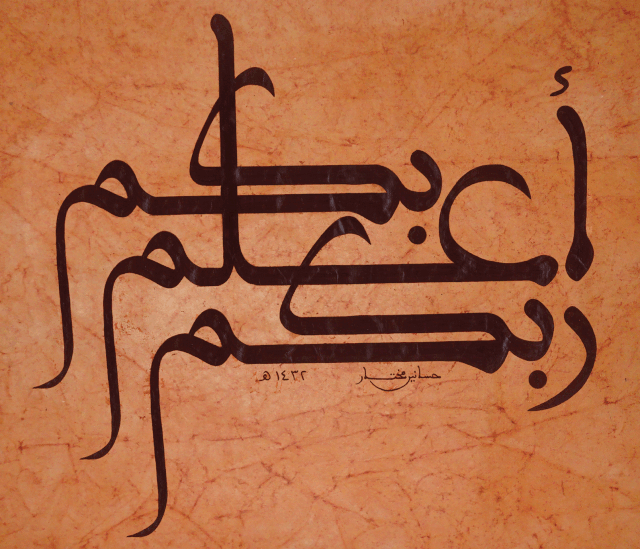 ربكم
أعلم
بكم
حسانين مختار ١٤٣٢ هـ